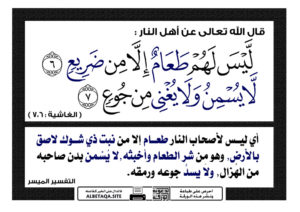 قال الله تعالى عن أهل النار :
لَّيْسَ لَهُمْ طَعَامٌ إِلَّا مِن ضَرِيعٍ ٦
لَّا يُسْمِنُ وَلَا يُغْنِي مِن جُوعٍ ٧
( الغاشية : ٦،٧ )
أي ليس لأصحاب النار طعام إلا من نبت ذي شوك لاصق
بالأرض، وهو من شر الطعام وأخبثه، لا يُسْمن بدن صاحبه
من الهُزال، ولا يسدُّ جوعه ورمقه.
التفسير الميسر
ALBETAQA.SITE